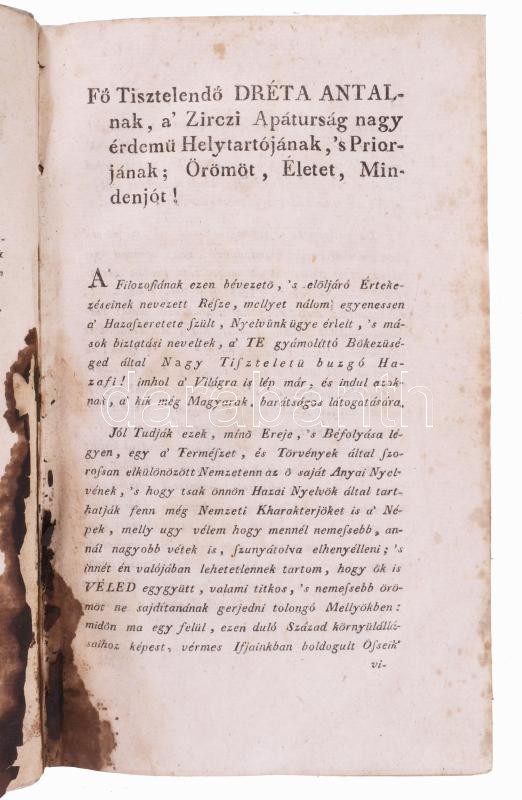 Fő Tisztelendő DRÉTA ANTAL-
nak, a' Zirczi Apáturság nagy
érdemü Helytartójának, 's Prior-
jának; Örömöt, Életet, Min-
denjót!
A Filozofiának ezen bévezető, 's elöljáró Érteke-
zéseinek nevezett Réſze, mellyet nálom egyenessen
a' Hazaſzeretete ſzült, Nyelvünk ügye érlelt, 's má-
sok biztatási neveltek, a' TE gyámolíttó Bőkezüsé-
ged által Nagy Tiſzteletü buzgó Ha-
zafi! imhol a' Világra is lép már, és indul azok-
nak, a' kik még Magyarok, barátságos látogatására.
Jól Tudják ezek, minő Ereje, 's Béfolyása lé-
gyen, egy a' Termėſzet, és Törvények által ſzo-
roſsan elkülönözött Nemzetenn az ő saját Anyai Nyel-
vének, 's hogy tsak önnön Hazai Nyelvök által tart-
hatják fenn még Nemzeti Kharakterjöket is a' Né-
pek, melly ugy vélem hogy mennél nemeſsebb, an-
nál nagyobb vétek is, ſzunyátolva elhenyélleni; 's
innét én valójában lehetetlennek tartom, hogy ők is
VÉLED egygyütt, valami titkos, 's nemeſsebb örö-
möt ne sajdítanának gerjedni tolongó Mellyökben:
midőn ma egy felül, ezen duló Század környülállá-
saihoz képest, vérmes Ifjainkban boldogult Öſseik'
vi-
darabanth